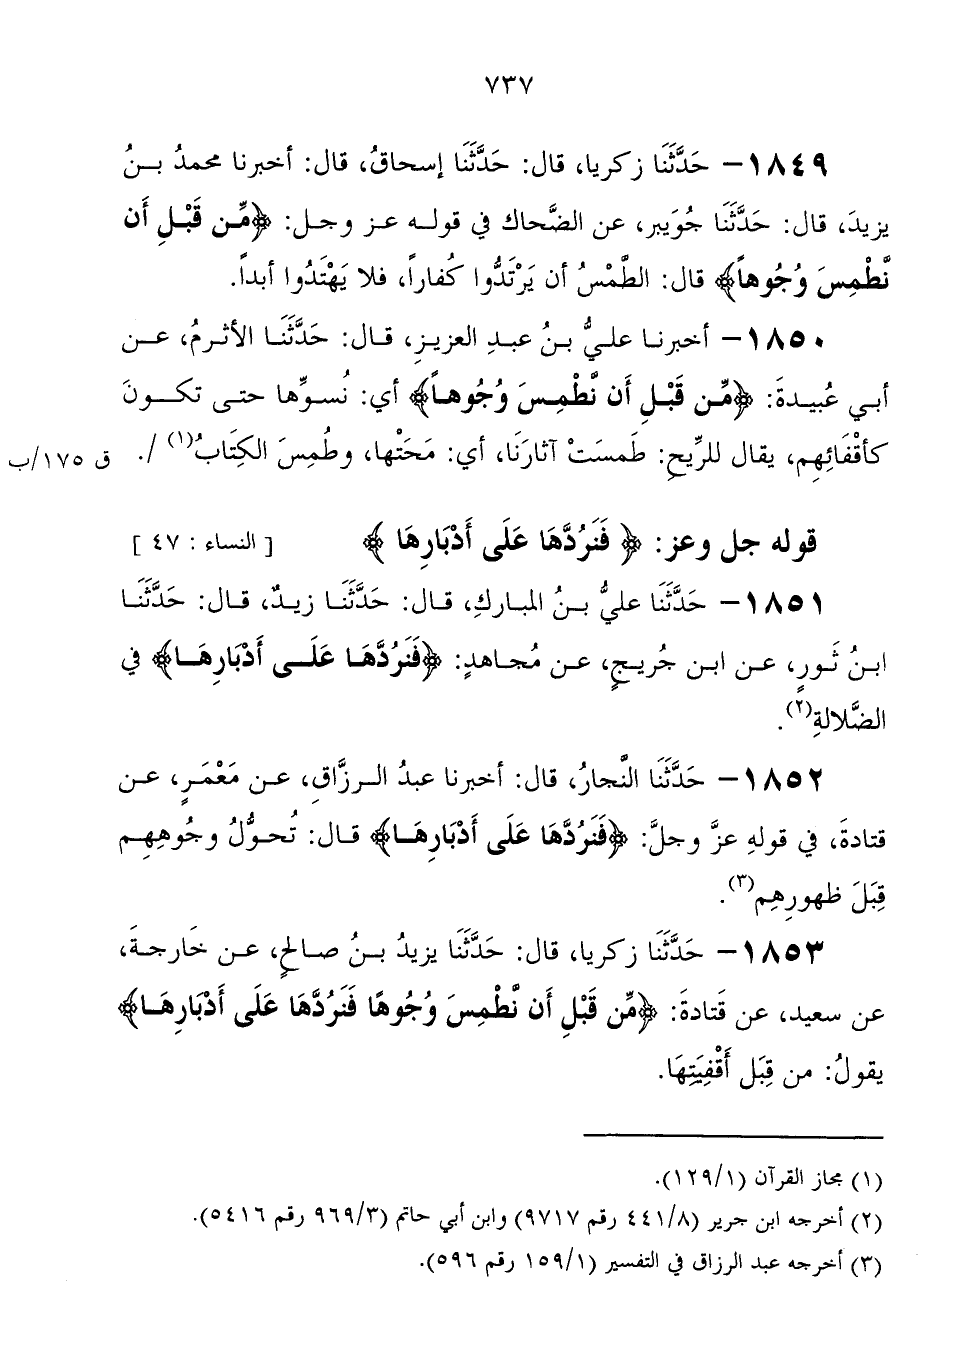 ٧٣٧
١٨٤٩ – حَدَّثَنَا زكريا، قال: حَدَّثَنَا إسحاقُ، قال: أخبرنا محمدُ بـنُ
يزيدَ، قال: حَدَّثَنَا جُوَيبر، عن الضَّحاك في قولـه عـز وجـل: ﴿مِّـن قَبْـلِ أَن
نَّطْمِسَ وُجُوهاً﴾ قال: الطَّمْسُ أن يَرْتَدُّوا كُفاراً، فلا يَهْتَدُوا أبداً.
١٨٥٠ – أخبرنـا علـيُّ بـنُ عبـدِ العزيـزِ، قـال: حَدَّثَنَـا الأثـرمُ، عـن
أبـي عُبيـدةَ: ﴿مِّـن قَبْـلِ أَن نَّطْمِـسَ وُجُوهـاً﴾ أي: نُسـوِّها حتـى تكـونَ
كأقْفَائِهِم، يقال للرِّيحِ: طَمسَتْ آثارَنَا، أي: مَحَتْها، وطُمِسَ الكِتَابُ(١) /. ق ١٧٥/ب
قوله جل وعز: ﴿ فَنَرُدَّهَا عَلَى أَدْبَارِهَا ﴾ [ النساء : ٤٧ ]
١٨٥١ – حَدَّثَنَا عليُّ بـنُ المباركِ، قـال: حَدَّثَنَـا زيـدٌ، قـال: حَدَّثَنَـا
ابـنُ ثَـورٍ، عـن ابـن جُريـجٍ، عـن مُجـاهدٍ: ﴿فَنَرُدَّهَـا عَلَـى أَدْبَارِهَـا﴾ في
الضَّلالةِ(٢).
١٨٥٢ – حَدَّثَنَا النَّجارُ، قال: أخبرنا عبدُ الـرزَّاقِ، عـن مَعْمَـرٍ، عـن
قتادةَ، في قولهِ عزَّ وجلَّ: ﴿فَنَرُدَّهَا عَلَى أَدْبَارِهَـا﴾ قـال: تُحـوَّلُ وجُوهِهِـم
قِبَلَ ظهورِهِم(٣).
١٨٥٣ – حَدَّثَنَا زكريا، قال: حَدَّثَنَا يزيدُ بـنُ صـالحٍ، عـن خَارجـةَ،
عن سعيد، عن قَتادةَ: ﴿مِّن قَبْلِ أَن نَّطْمِسَ وُجُوهًا فَنَرُدَّهَا عَلَى أَدْبَارِهَـا﴾
يقولُ: من قِبَل أَقْفِيَتِهَا.
(١) مجاز القرآن (١/١٢٩).
(٢) أخرجه ابن جرير (٨/٤٤١ رقم ٩٧١٧) وابن أبي حاتم (٣/٩٦٩ رقم ٥٤١٦).
(٣) أخرجه عبد الرزاق في التفسير (١/١٥٩ رقم ٥٩٦).